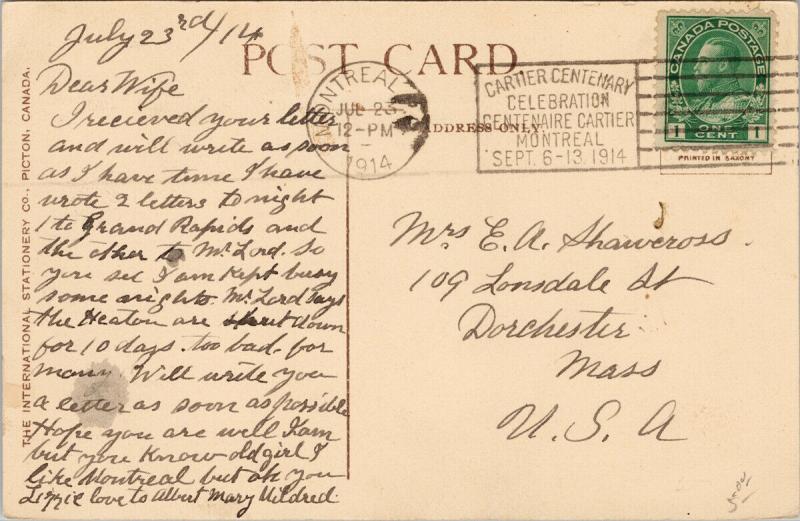 July 23rd/14
POST CARD
Dear Wife
I recieved your letter
and will write as soon
as I have time I have
wrote 2 letters to night
1 to Grand Rapids and
the other to Mr Lord. So
you see I am kept busy
some nights. Mr Lord says
the Heaton are shut down
for 10 days. too bad. for
many Will write you
a letter as soon as possible
Hope you are well I am
but you know old girl I
like Montreal but oh you
Lizzie love to Albert Mary Mildred.
THE INTERNATIONAL STATIONERY CO., PICTON, CANADA.
MONTREAL
JUL 23
12-PM
1914
CARTIER CENTENARY
CELEBRATION
CENTENAIRE CARTIER
MONTREAL
SEPT. 6-13. 1914
ADDRESS ONLY
CANADA POSTAGE
1 ONE CENT 1
PRINTED IN SAXONY
Mrs E. A. Shawcross.
109 Lonsdale St
Dorchester
Mass
U. S. A